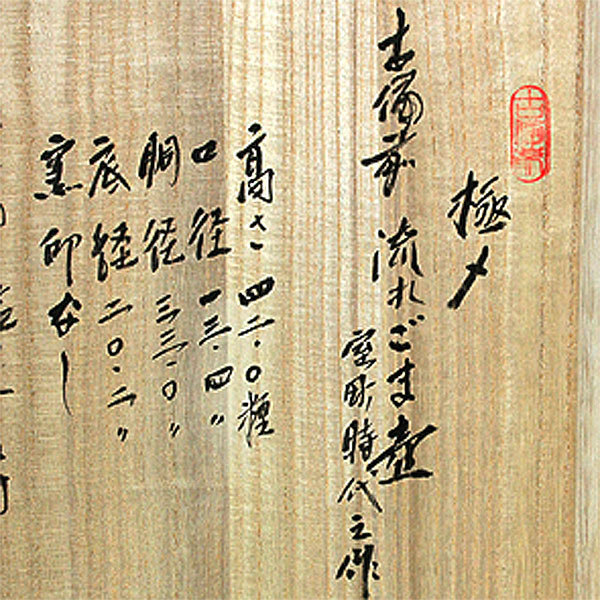 極メ
古備前 流れごま壷
室町時代之作
高さ 四二・〇糎
口径 一三・四〃
胴径 三三・〇〃
底径 二〇・二〃
窯印なし